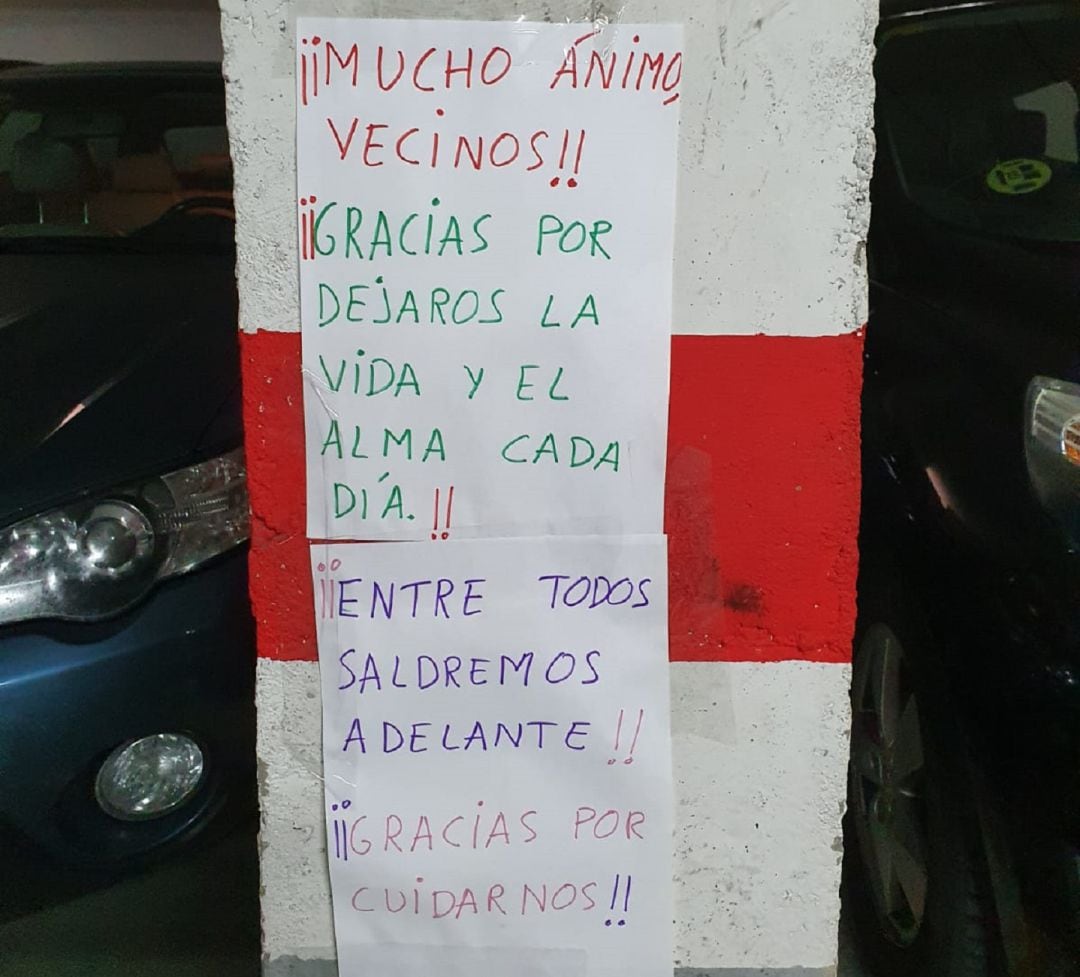 ¡¡MUCHO ÁNIMO,
VECINOS!!
¡¡GRACIAS POR
DEJAROS LA
VIDA Y EL
ALMA CADA
DÍA.!!
¡¡ENTRE TODOS
SALDREMOS
ADELANTE!!
¡¡GRACIAS POR
CUIDARNOS!!